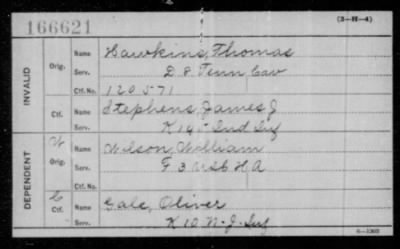 166621
(3-H-4)
INVALID
Orig.
Name Hawkins, Thomas
Serv. D 8 Tenn Cav
Ctf. No. 120571
Ctf.
Name Stephens, James J
Serv. K 19 Ind Inf
DEPENDENT
W
Orig.
Name Wilson, William
Serv. F 3 H A
Ctf. No.
C
Ctf.
Name Gale, Oliver
Serv. K 10 N. J. Inf